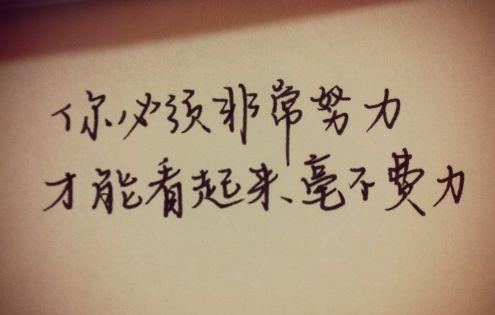 你必须非常努力
才能看起来、毫不费力